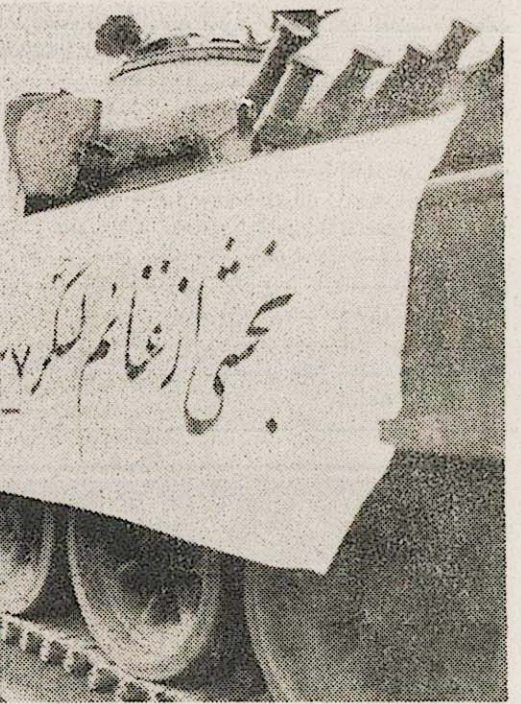 بخشی از غنائم لشکر ۲۷